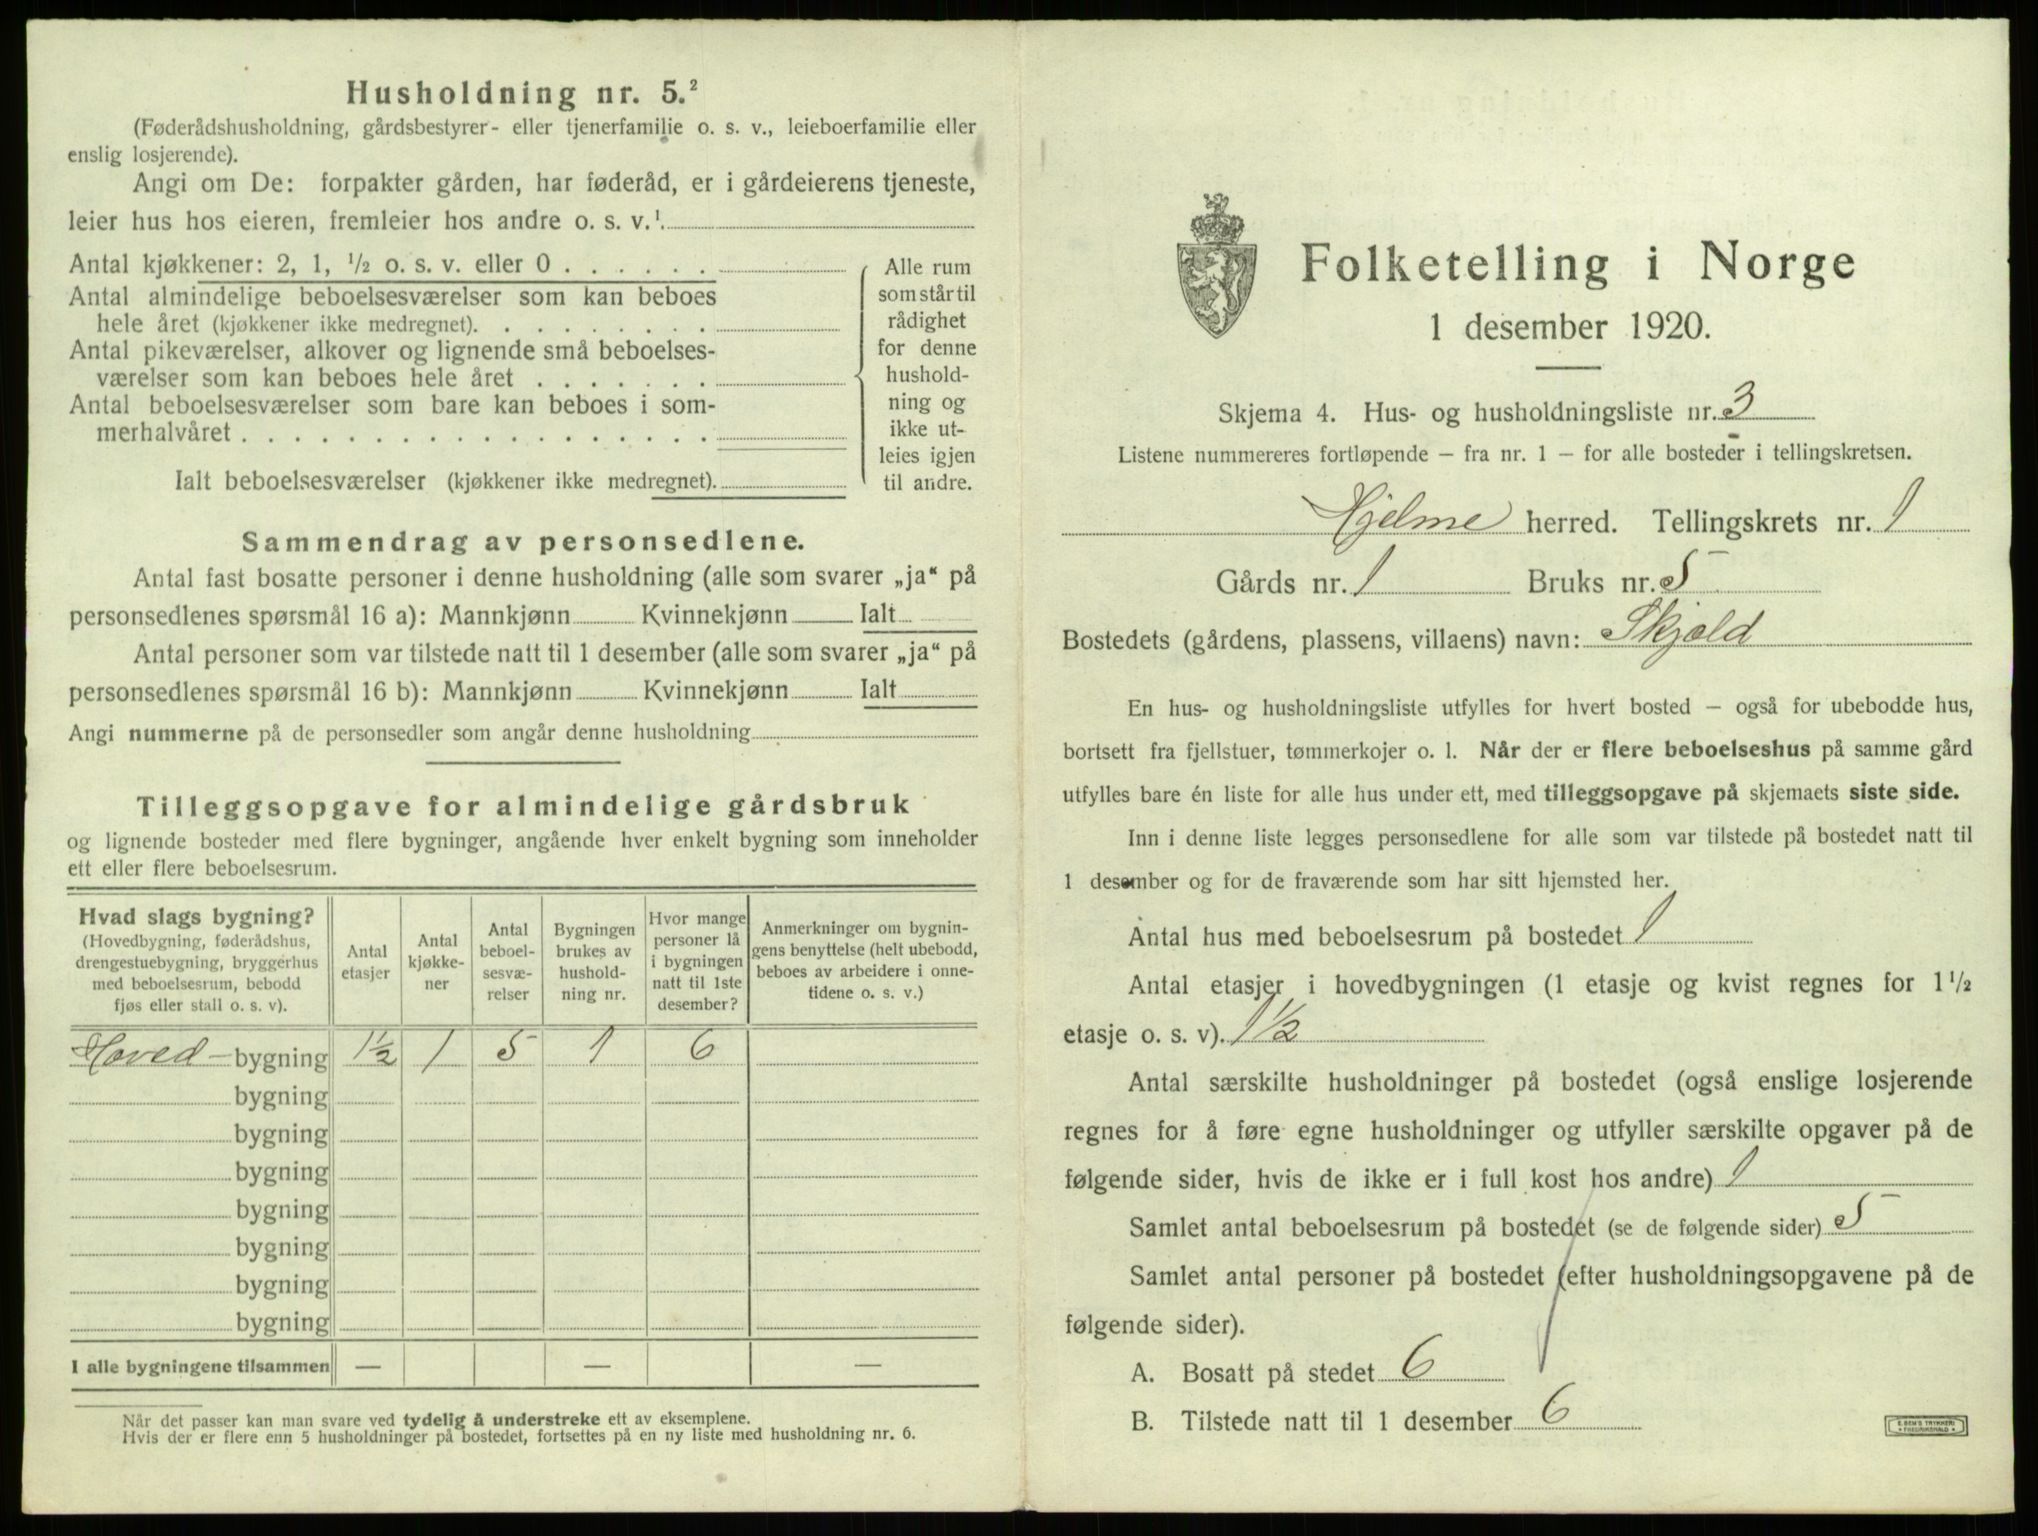 Husholdning nr. 5.²
(Føderådshusholdning, gårdsbestyrer- eller tjenerfamilie o. s. v., leieboerfamilie eller
enslig losjerende).
Angi om De: forpakter gården, har føderåd, er i gårdeierens tjeneste,
leier hus hos eieren, fremleier hos andre o. s. v.¹
Antal kjøkkener: 2, 1, ½ o. s. v. eller 0 . . . . . .
Antal almindelige beboelsesværelser som kan beboes
hele året (kjøkkener ikke medregnet). . . . . . . . .
Antal pikeværelser, alkover og lignende små beboelses-
værelser som kan beboes hele året . . . . . . .
Antal beboelsesværelser som bare kan beboes i som-
merhalvåret . . . . . . . . . . . . . . . . . .
Ialt beboelsesværelser (kjøkkener ikke medregnet).
Alle rum
som står til
rådighet
for denne
hushold-
ning og
ikke ut-
leies igjen
til andre.
Sammendrag av personsedlene.
Antal fast bosatte personer i denne husholdning (alle som svarer „ja“ på
personsedlenes spørsmål 16 a): Mannkjønn Kvinnekjønn Ialt
Antal personer som var tilstede natt til 1 desember (alle som svarer „ja“ på
personsedlenes spørsmål 16 b): Mannkjønn Kvinnekjønn Ialt
Angi nummerne på de personsedler som angår denne husholdning
Tilleggsopgave for almindelige gårdsbruk
og lignende bosteder med flere bygninger, angående hver enkelt bygning som inneholder
ett eller flere beboelsesrum.
Hvad slags bygning?
(Hovedbygning, føderådshus,
drengestuebygning, bryggerhus
med beboelsesrum, bebodd
fjøs eller stall o. s. v).
Antal
etasjer
Antal
kjøkke-
ner
Antal
beboel-
sesvæ-
relser
Bygningen
brukes av
hushold-
ning nr.
Hvor mange
personer lå
i bygningen
natt til 1ste
desember?
Anmerkninger om bygnin-
gens benyttelse (helt ubebodd,
beboes av arbeidere i onne-
tidene o. s. v.)
Hoved- bygning 1½ 1 5 1 6
bygning
bygning
bygning
bygning
bygning
bygning
bygning
I alle bygningene tilsammen — — —
Når det passer kan man svare ved tydelig å understreke ett av eksemplene.
Hvis der er flere enn 5 husholdninger på bostedet, fortsettes på en ny liste med husholdning nr. 6.
Folketelling i Norge
1 desember 1920.
Skjema 4. Hus- og husholdningsliste nr. 3
Listene nummereres fortløpende – fra nr. 1 – for alle bosteder i tellingskretsen.
Hjelme herred. Tellingskrets nr. 1
Gårds nr. 1 Bruks nr. 5
Bostedets (gårdens, plassens, villaens) navn: Skjold
En hus- og husholdningsliste utfylles for hvert bosted – også for ubebodde hus,
bortsett fra fjellstuer, tømmerkojer o. l. Når der er flere beboelseshus på samme gård
utfylles bare én liste for alle hus under ett, med tilleggsopgave på skjemaets siste side.
Inn i denne liste legges personsedlene for alle som var tilstede på bostedet natt til
1 desember og for de fraværende som har sitt hjemsted her.
Antal hus med beboelsesrum på bostedet 1
Antal etasjer i hovedbygningen (1 etasje og kvist regnes for 1½
etasje o. s. v). 1½
Antal særskilte husholdninger på bostedet (også enslige losjerende
regnes for å føre egne husholdninger og utfyller særskilte opgaver på de
følgende sider, hvis de ikke er i full kost hos andre) 1
Samlet antal beboelsesrum på bostedet (se de følgende sider) 5
Samlet antal personer på bostedet (efter husholdningsopgavene på de
følgende sider).
A. Bosatt på stedet 6
B. Tilstede natt til 1 desember 6
E. SEM'S TRYKKERI
FREDRIKSHALD